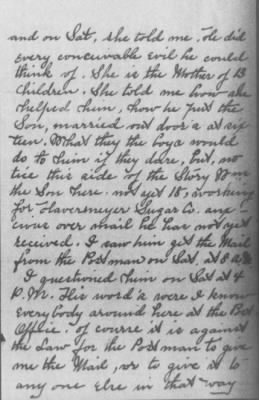 and on Sat, she told me. He did
every conceivable evil he could
think of. She is the Mother of 13
Children. She told me how she
helped him, how he put the
Son, married out doors at six
teen. What they the boys would
do to him if they dare, but, no
tice this side of the Story from
the Son here. not yet 18, working
for Havensmeyer Sugar Co. anx
ious over mail he has not yet
received. I saw him get the Mail
from the Postman on Sat. at 8 a.m.
I questioned him on Sat at 4
P.M. His word's were I know
everybody around here at the Post
Office. of course it is against
the Law for the Postman to give
me the Mail, or to give it to
any one else in that way